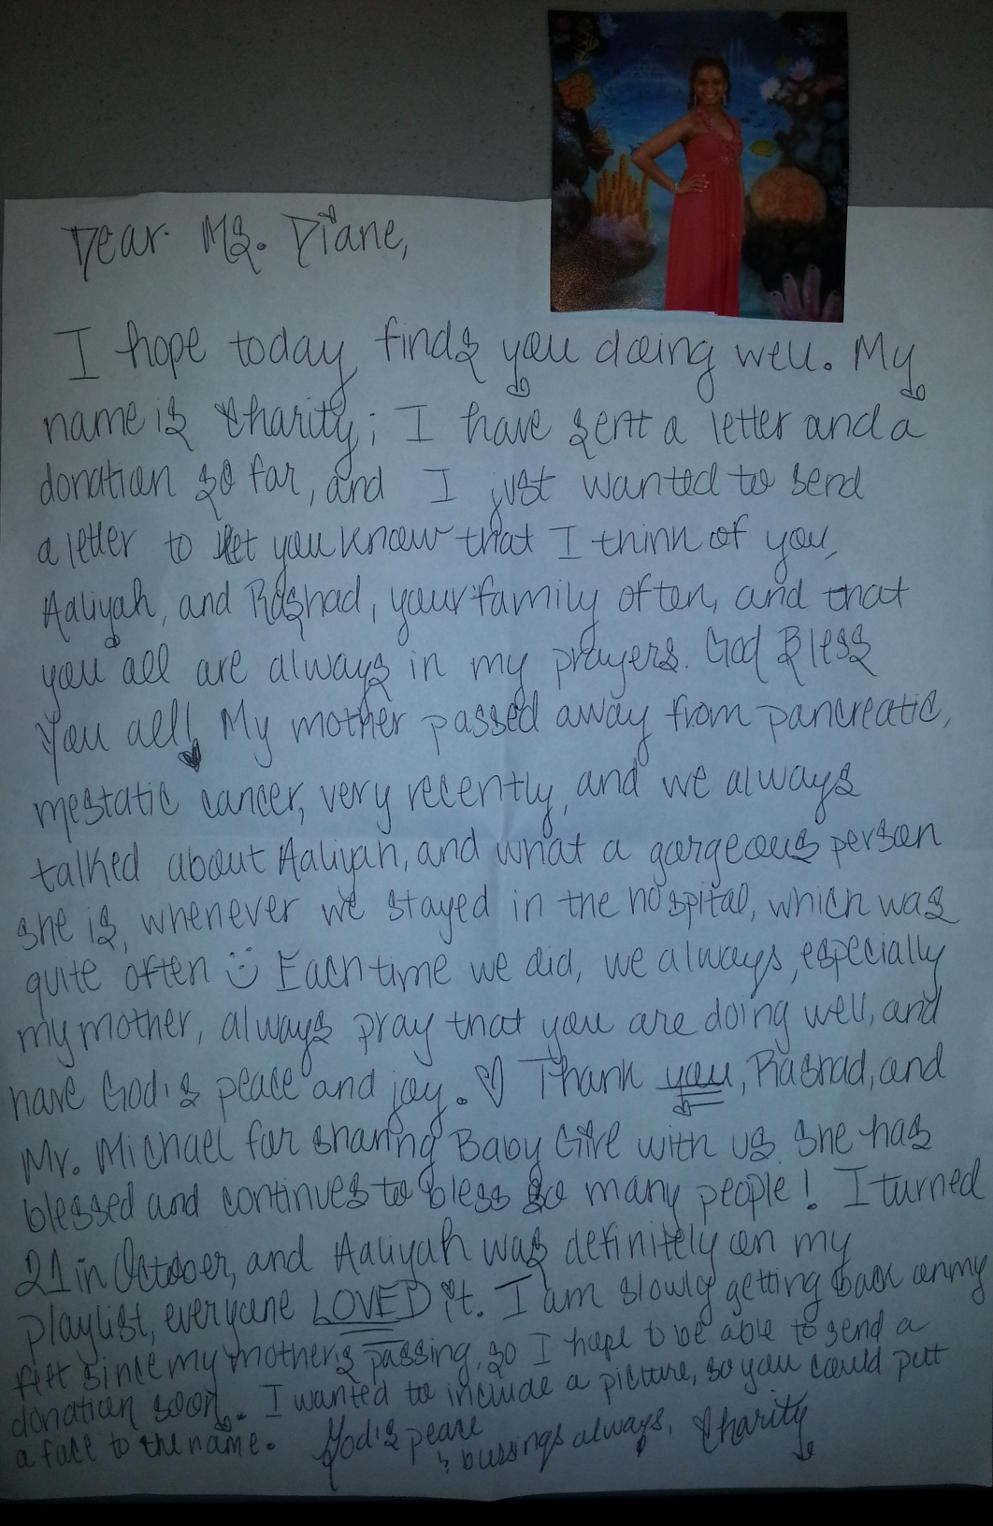 Dear Ms. Diane,
I hope today finds you doing well. My
name is Charity; I have sent a letter and a
donation so far, and I just wanted to send
a letter to let you know that I think of you,
Aaliyah, and Rashad, your family often, and that
you all are always in my prayers. God Bless
You all! My mother passed away from pancreatic,
mestatic cancer, very recently, and we always
talked about Aaliyah, and what a gorgeous person
she is, whenever we stayed in the hospital, which was
quite often :) Each time we did, we always, especially
my mother, always pray that you are doing well, and
have God's peace and joy. ♡ Thank you, Rashad, and
Mr. Michael for sharing Baby Girl with us. She has
blessed and continues to bless so many people! I turned
21 in October, and Aaliyah was definitely on my
playlist, everyone LOVED it. I am slowly getting back on my
feet since my mothers passing, so I hope to be able to send a
donation soon. I wanted to include a picture, so you could put
a face to the name. God's peace
& blessings always, Charity